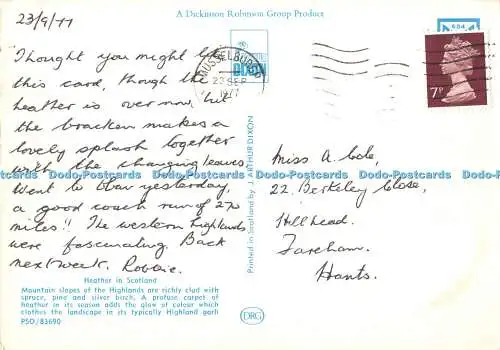 A Dickinson Robinson Group Product
23/9/77
Thought you might like
this card, though the
heather is over now but
the bracken makes a
lovely splash together
with the changing leaves.
Went to Oban yesterday,
a good coach run of 270
miles!! The western highlands
were fascinating. Back
next week. Robbie.
Heather in Scotland
Mountain slopes of the Highlands are richly clad with
spruce, pine and silver birch. A profuse carpet of
heather in its season adds the glow of colour which
clothes the landscape in its typically Highland garb
PSO/83690
Printed in Scotland by J. ARTHUR DIXON
DRG
MUSSELBURGH
23 SEP
1977
684
7P
Miss A. Cole,
22. Berkeley Close,
Hillhead.
Fareham.
Hants.
Dodo-Postcards Dodo-Postcards Dodo-Postcards Dodo-Postcards Dodo-Postcards
Dodo-Postcards Dodo-Postcards Dodo-Postcards Dodo-Postcards Dodo-Postcards